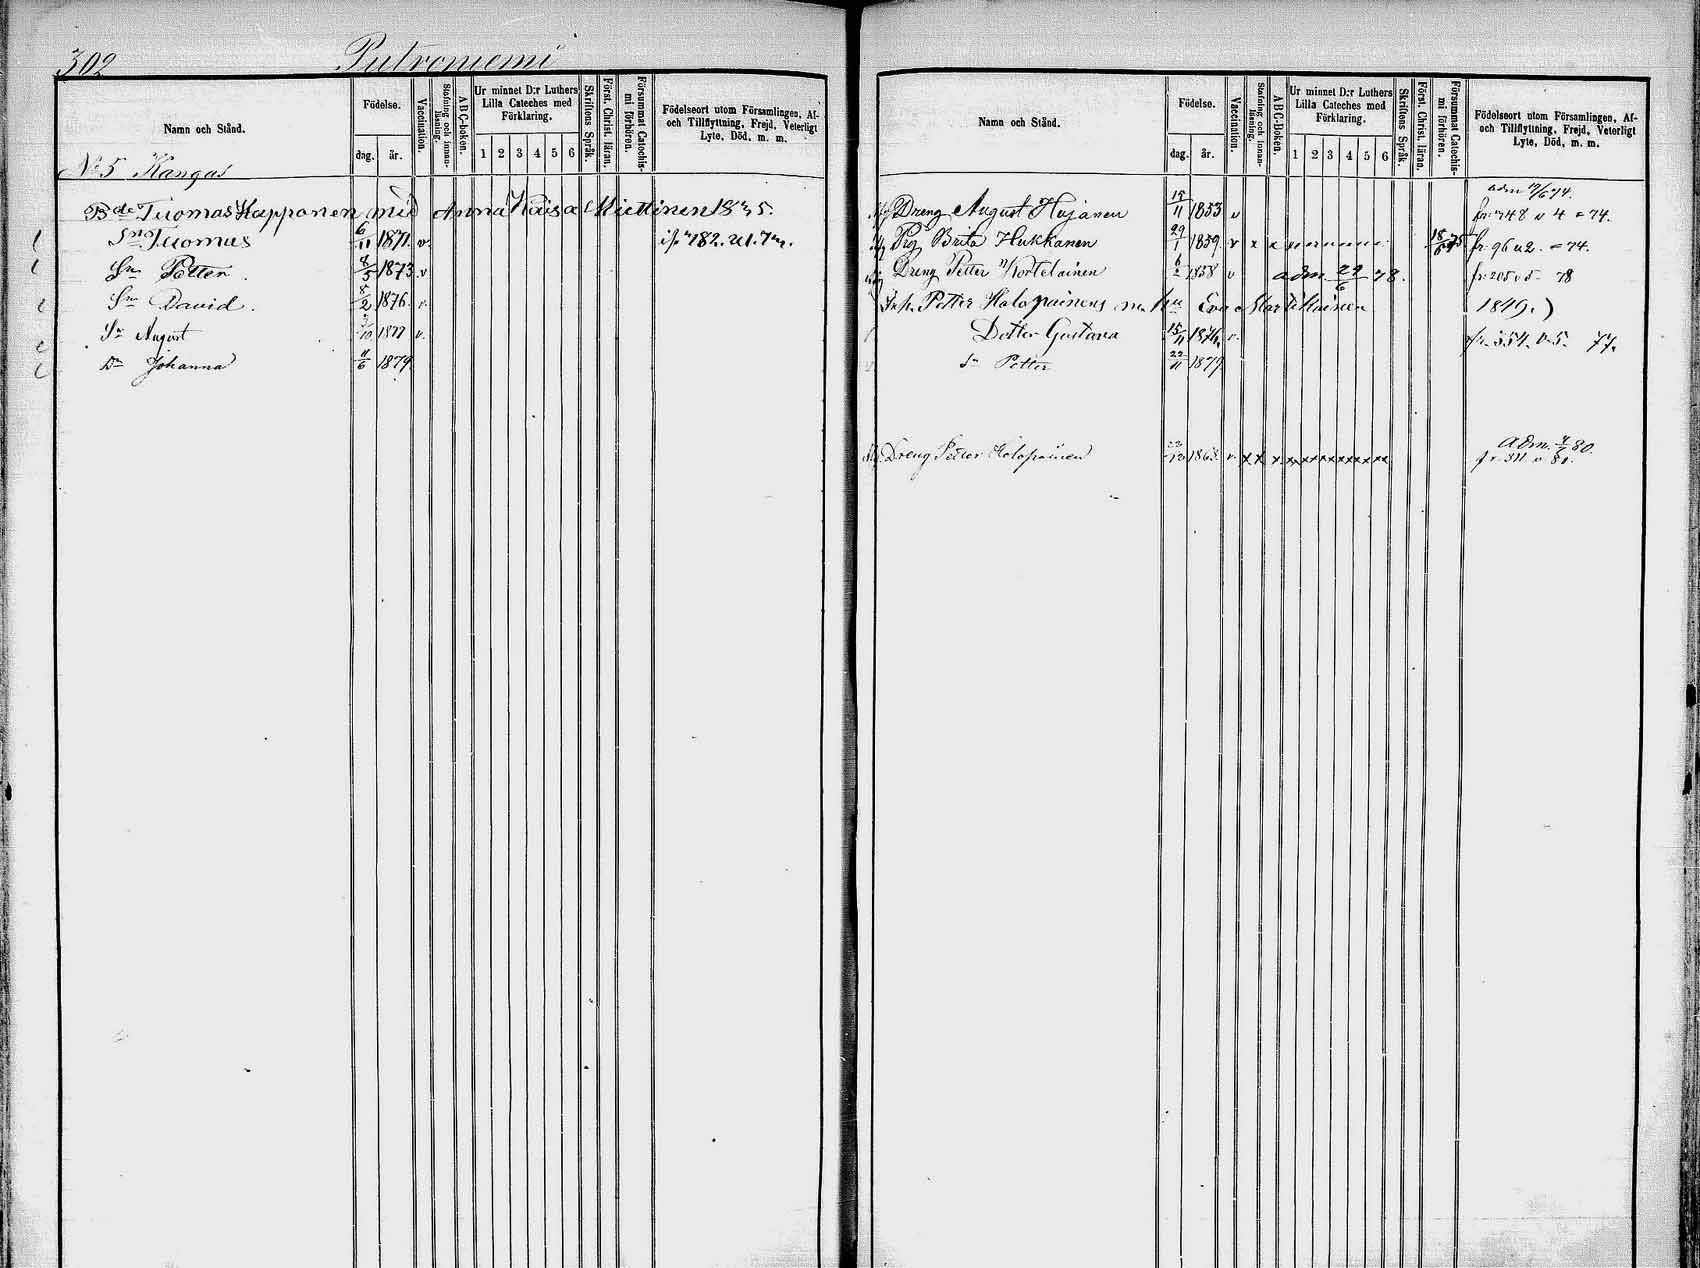 302 Putroniemi
Namn och Stånd.
Födelse.
dag. år.
Vaccination.
Stafning och innan-läsning.
A B C-boken.
Ur minnet D:r Luthers Lilla Cateches med Förklaring.
1 2 3 4 5 6
Skriftens Språk.
Först. Christ. läran.
Försummat Catechis-mi förhören.
Födelseort utom Församlingen, Af- och Tillflyttning, Frejd, Veterligt Lyte, Död, m. m.
No 5 Kangas
Bde Tuomas Kapponen med Anna Kaisa Miettinen
Sn Tuomas 6/11 1871. v.
Sn Petter. 8/5 1873 v
Sn David. 8/2 1876. v.
Sn August /10 1877 v.
Dr Johanna 11/6 1879.
Namn och Stånd.
Födelse.
dag. år.
Vaccination.
Stafning och innan-läsning.
A B C-boken.
Ur minnet D:r Luthers Lilla Cateches med Förklaring.
1 2 3 4 5 6
Skriftens Språk.
Först. Christ. läran.
Försummat Catechis-mi förhören.
Födelseort utom Församlingen, Af- och Tillflyttning, Frejd, Veterligt Lyte, Död, m. m.
Dreng August Hujanen 15/11 1853 v fr 748 v 4 = 74.
Pig Brita Hukkanen 29/1 1859. v x x fr. 96 u 2. = 74.
Dreng Petter Kortelainen 6/2 1858 v adm 22/6 78. fr. 205 v 5 78
Inh. Petter Holopainens m. hu Eva Martikainen 1849.)
Dotter Gustava 15/11 1876. v. fr. 354. v. 5. 77.
Sn Petter 22/11 1879.
Dreng Petter Holopainen v. x x x Adm. 80.
fr. 311 v. 80.